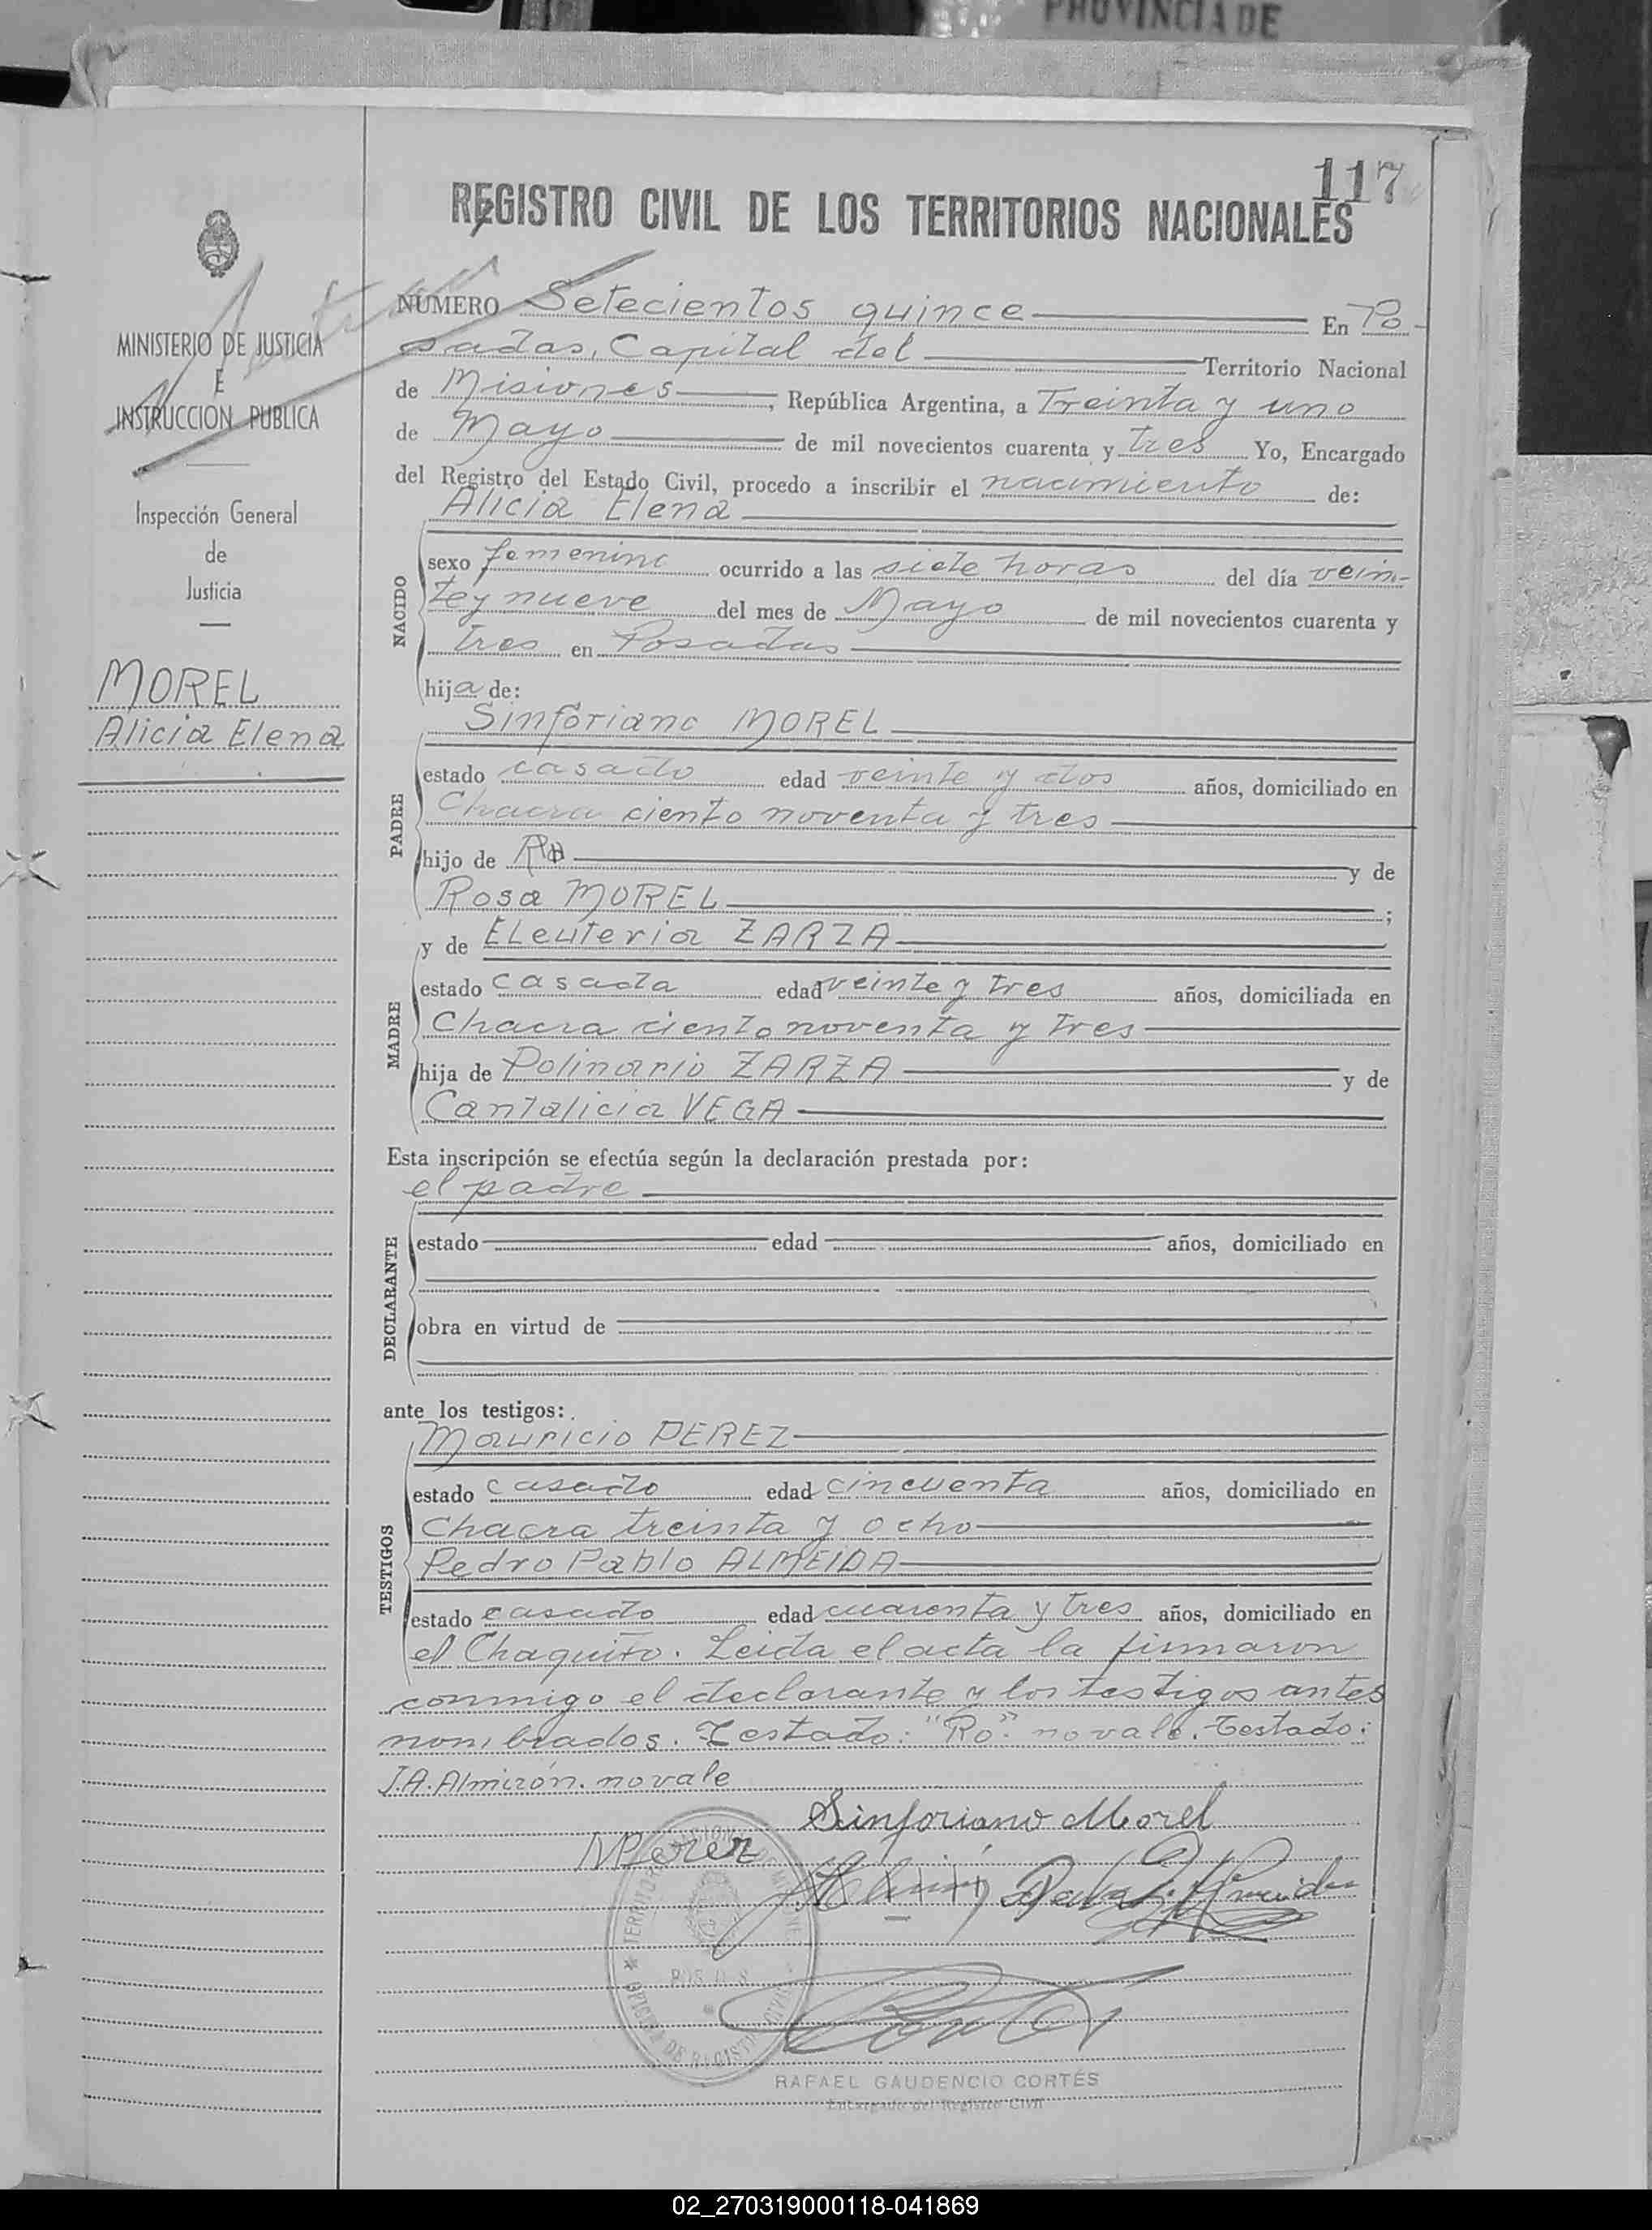 PROVINCIA DE
117
REGISTRO CIVIL DE LOS TERRITORIOS NACIONALES
MINISTERIO DE JUSTICIA
E
INSTRUCCION PUBLICA
Inspección General
de
Justicia
MOREL
Alicia Elena
NUMERO Setecientos quince En Po-
sadas, Capital del Territorio Nacional
de Misiones, República Argentina, a Treinta y uno
de Mayo de mil novecientos cuarenta y tres Yo, Encargado
del Registro del Estado Civil, procedo a inscribir el nacimiento de:
Alicia Elena
NACIDO
sexo femenino ocurrido a las siete horas del día vein-
tey nueve del mes de Mayo de mil novecientos cuarenta y
tres en Posadas
hija de:
Sinforiano MOREL
PADRE
estado casado edad veinte y dos años, domiciliado en
Chacra ciento noventa y tres
hijo de Ro y de
Rosa MOREL ;
y de ELeuteria ZARZA
MADRE
estado casada edad veinte y tres años, domiciliada en
Chacra ciento noventa y tres
hija de Polinario ZARZA y de
Cantalicia VEGA
Esta inscripción se efectúa según la declaración prestada por:
el padre
DECLARANTE
estado edad años, domiciliado en
obra en virtud de
ante los testigos:
Mauricio PEREZ
TESTIGOS
estado casado edad cincuenta años, domiciliado en
Chacra treinta y ocho
Pedro Pablo ALMEIDA
estado casado edad cuarenta y tres años, domiciliado en
el Chaquito. Leida el acta la firmaron
conmigo el declarante y los testigos antes
nombrados. Testado: "Ro" no vale. Testado:
J.A. Almirón. no vale
Sinforiano Morel
MPerez
RAFAEL GAUDENCIO CORTÉS
Encargado del Registro Civil
02_270319000118-041869